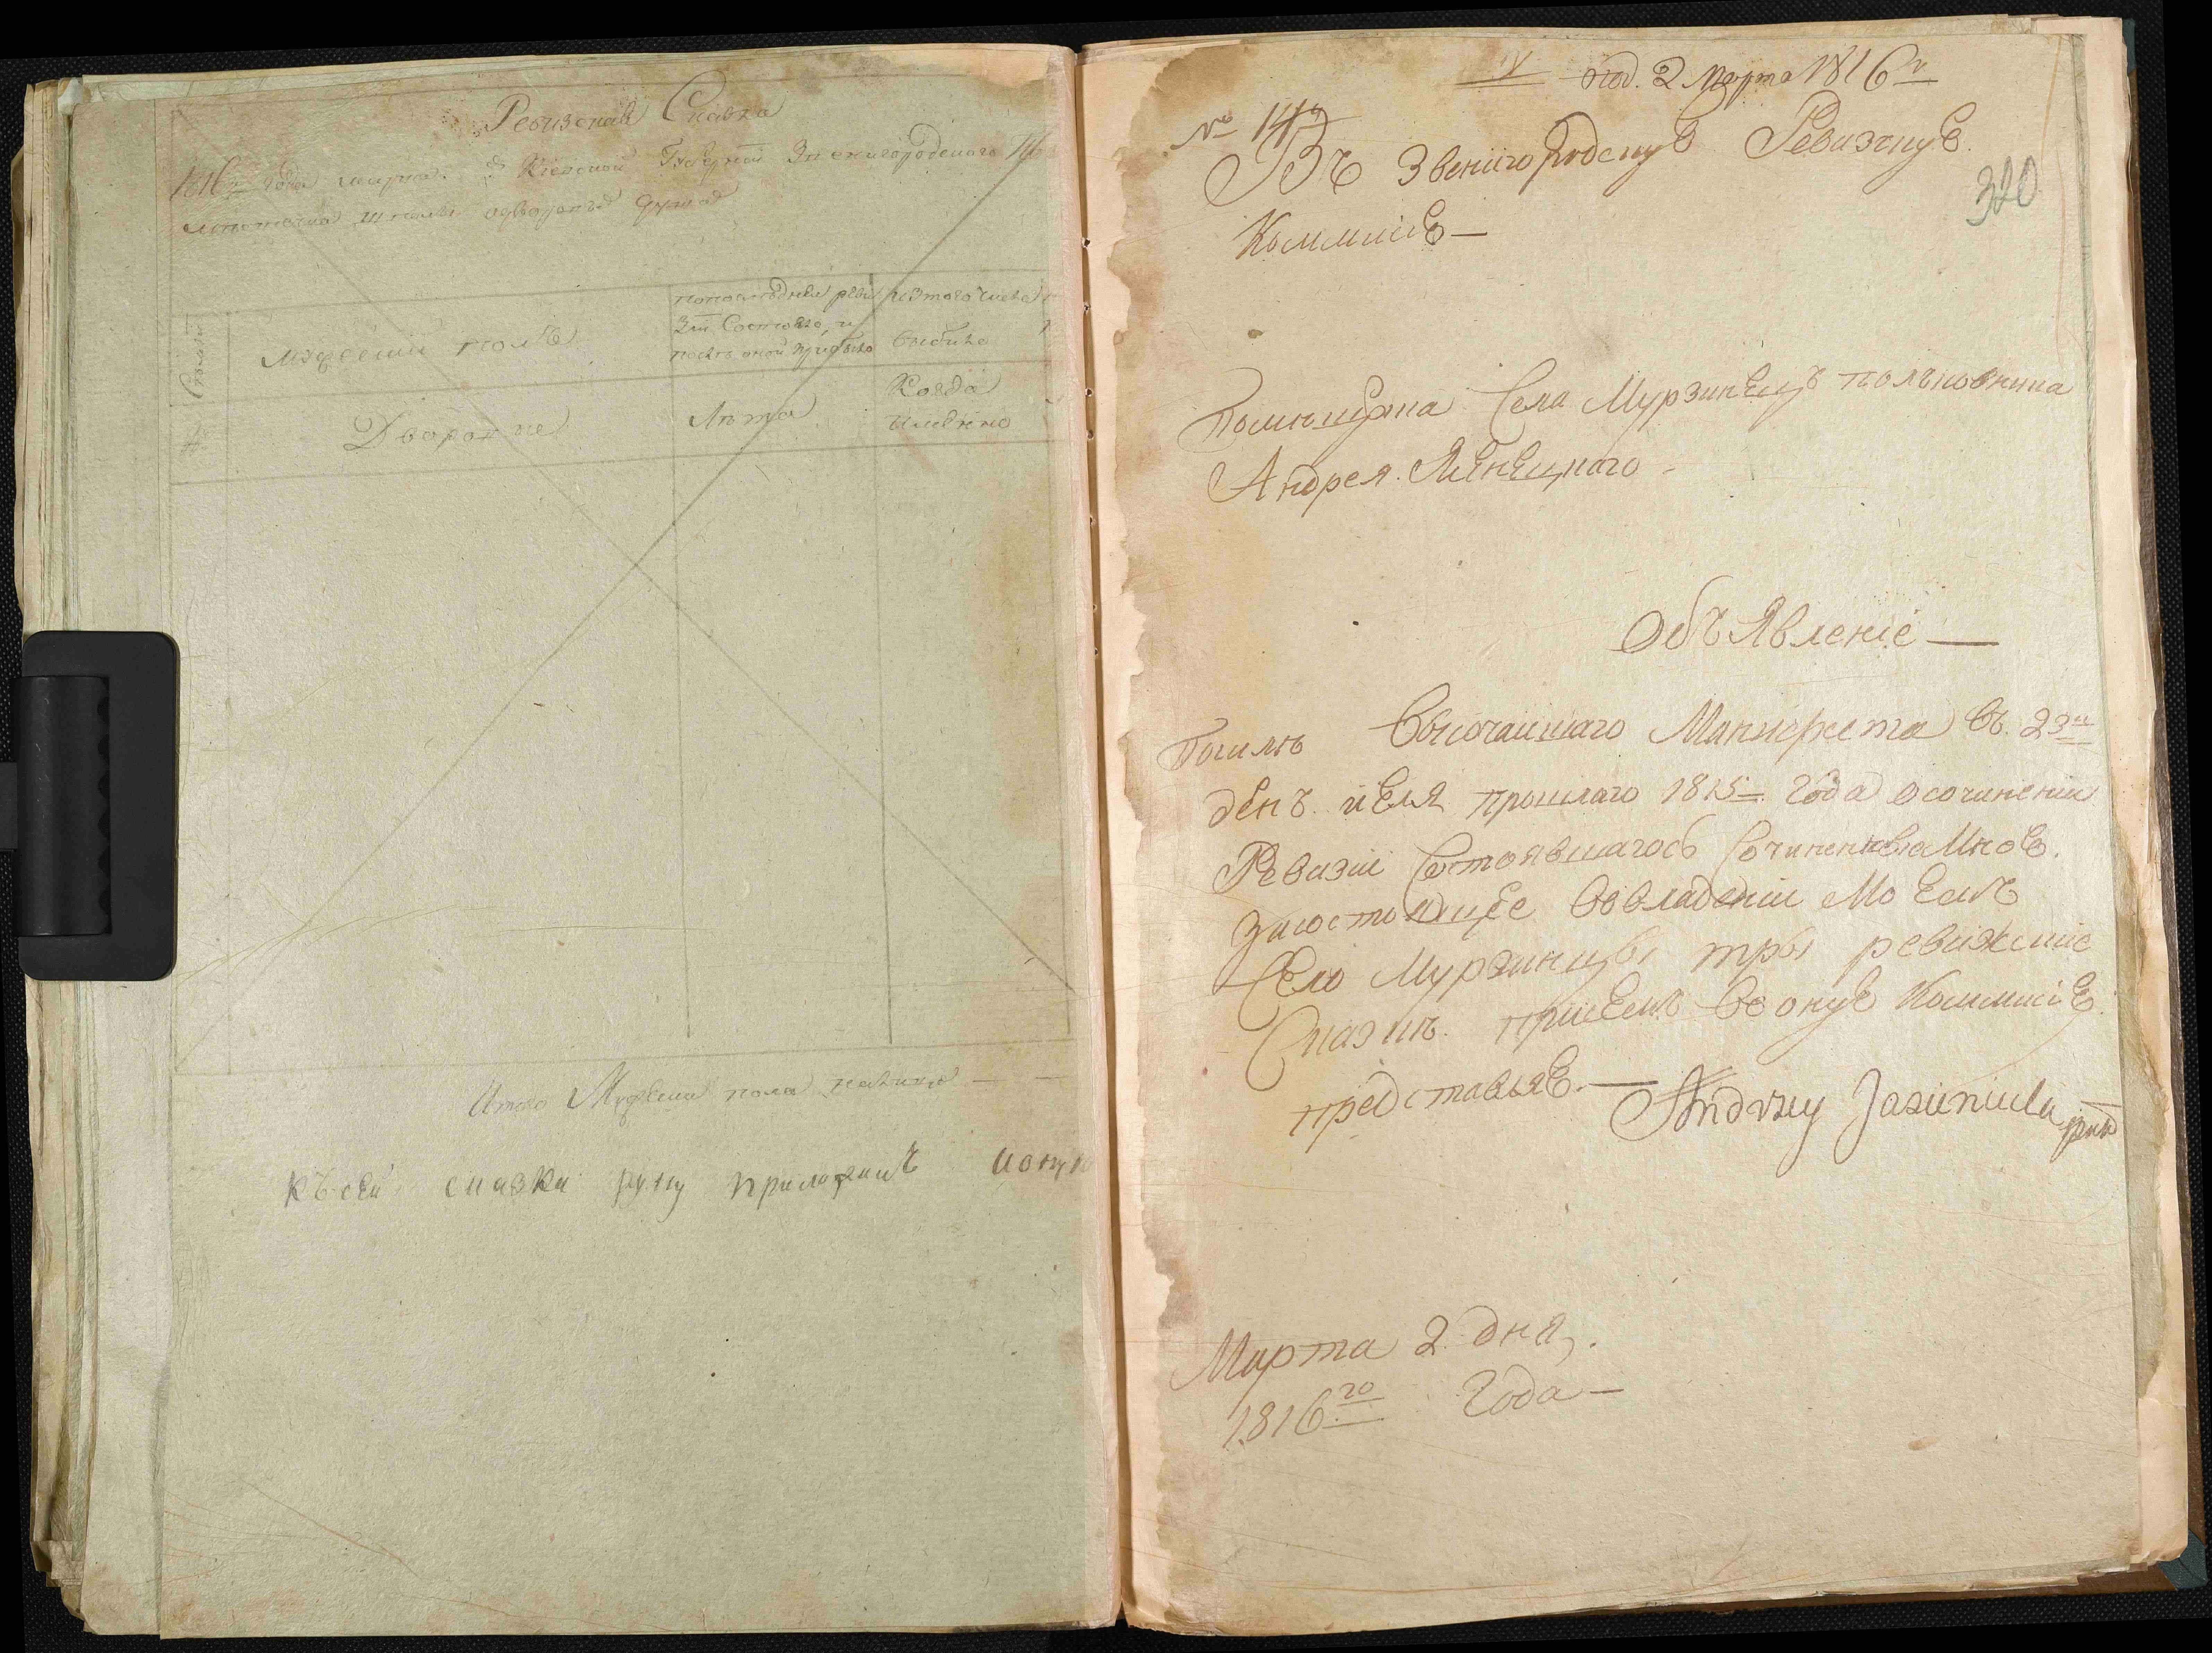 Ревизская Сказка
1816го года марта. Киевской Губернїи Звенигородского
мужеский полъ
попоследней реви
зїи Состояло, и
после оной прибыло
изтого числа
выбыло
Дворяне
Лѣта
Когда
имянно
Итого Мужеска пола налицо —
Къ сей сказки руку приложилъ
под. 2 Марта 1816го
№
Въ Звенигородскую Ревизскую
Коммисію —
320
Помѣщика Села Мурзинецъ полковника
Андрея
Объявленіе —
Посиле Высочаишаго Манифеста въ 23й
день прошлаго 1815 Года о сочинении
Ревизіи Состоявшагось Сочиненные Мною
Вовладеніи Моемъ
Село Мурзинцы тры ревижские
Сказки. присемъ вооную Коммисію
представляю. —
Andrzey
Марта 2 дня,
1816го Года —